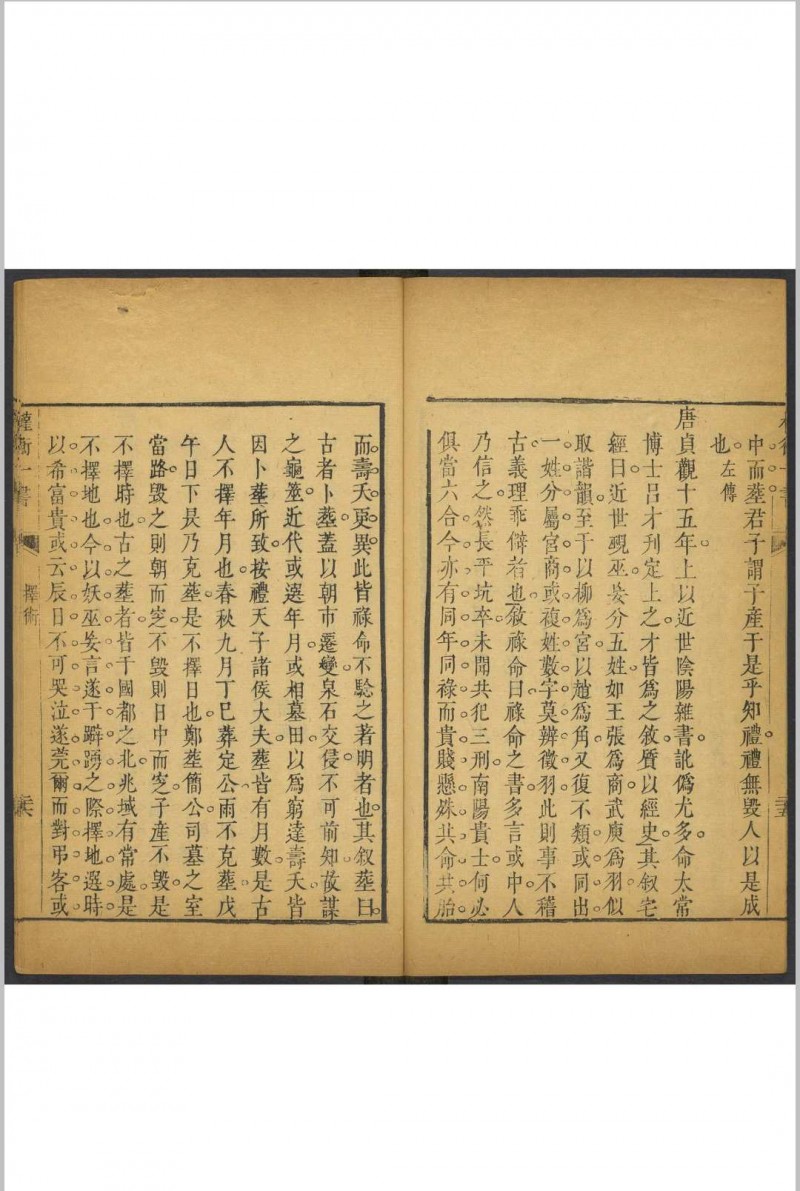 中而塟君子謂子產于是乎知禮禮無毀人以是成
也左傳
唐貞觀十五年上以近世陰陽雜書訛僞尤多命太常
博士吕才刋定上之才皆爲之敘質以經史其叙宅
經曰近世覡巫妄分五姓如王張爲商武庚爲羽似
取諧韻至于以柳爲宮以趙爲角又復不類或同出
一姓分屬宮商或複姓數字莫辨徵羽此則事不稽
古義理乖僻者也敘祿命曰祿命之書多言或中人
乃信之然長平坑卒未聞共犯三刑南陽貴士何必
俱當六合今亦有同年同祿而貴賤懸殊共命共胎
而壽夭更異此皆祿命不驗之著明者也其叙塟曰
古者卜塟蓋以朝市遷變泉石交侵不可前知故謀
之龜筮近代或選年月或相墓田以爲窮達壽夭皆
因卜塟所致按禮天子諸侯大夫塟皆有月數是古
人不擇年月也春秋九月丁巳葬定公雨不克葬戊
午日下昃乃克塟是不擇日也鄭塟簡公司墓之室
當路毀之則朝而窆不毀則日中而窆子產不毀是
不擇時也古之塟者皆于國都之北兆域有常處是
不擇地也今以妖巫妄言遂于躃踴之際擇地選時
以希富貴或云辰日不可哭泣遂莞爾而對弔客或
擇術